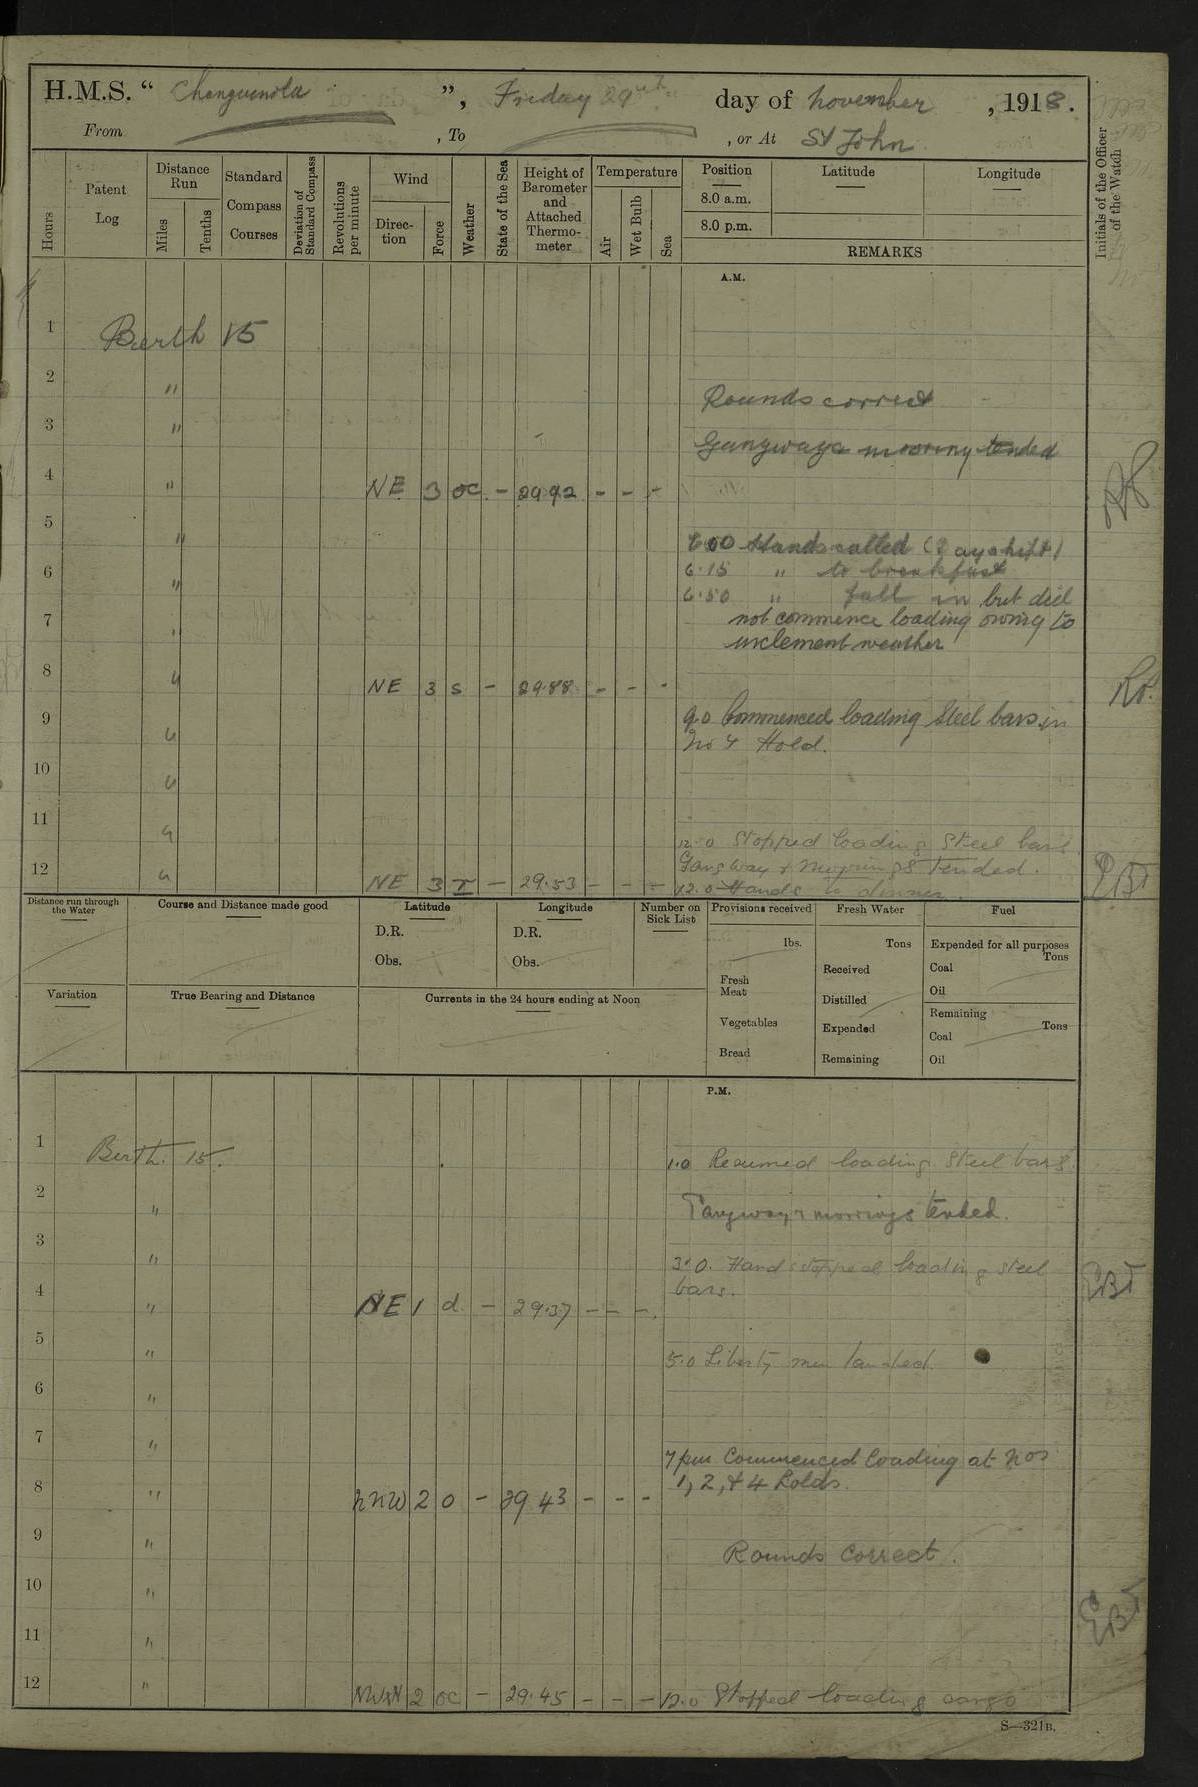 H.M.S. “ Changuinola ”, Friday 29th day of November, 1918.
From , To , or At St John
Hours
Patent Log
Distance Run
Miles
Tenths
Standard Compass Courses
Deviation of Standard Compass
Revolutions per minute
Wind
Direction
Force
Weather
State of the Sea
Height of Barometer and Attached Thermometer
Temperature
Air
Wet Bulb
Sea
Position
Latitude
Longitude
8.0 a.m.
8.0 p.m.
REMARKS
Initials of the Officer of the Watch
A.M.
1 Berth 15
2 "
Rounds correct
3 "
Gangways mooring tended
4 " NE 3 oc - 29.92 - - -
5 "
6.00 Hands called (Dayshift)
6 "
6.15 " to breakfast
6.50 " fall in but did
7 "
not commence loading owing to
inclement weather
8 " NE 3 s - 29.88 - - -
9 "
9.0 Commenced loading Steel bars in
No 4 Hold.
10 "
11 "
12.0 Stopped loading steel bars
Gangway & Moorings Tended.
12 " NE 3 - 29.53 - - - 12.0 Hands to dinner.
EBT
Distance run through the Water
Course and Distance made good
Latitude
Longitude
Number on Sick List
Provisions received
Fresh Water
Fuel
D.R.
D.R.
Obs.
Obs.
lbs.
Fresh Meat
Vegetables
Bread
Tons
Received
Distilled
Expended
Remaining
Expended for all purposes
Tons
Coal
Oil
Remaining
Tons
Coal
Oil
Variation
True Bearing and Distance
Currents in the 24 hours ending at Noon
P.M.
1 Berth. 15. 1.0 Resumed loading steel bars.
2 " Gangway & moorings tended.
3 " 3.0. Hands stopped loading steel
bars.
4 " NE 1 d - 29.37 - - -
EBT
5 " 5.0 Liberty men landed.
6 "
7 " 7 pm Commenced loading at Nos
1, 2, & 4 holds.
8 " NNW 2 o - 29 43 - - -
9 " Rounds correct.
10 "
EBT
11 "
12 " 2 oc - 29.45 - - - 12.0 Stopped loading cargo
S—321B.